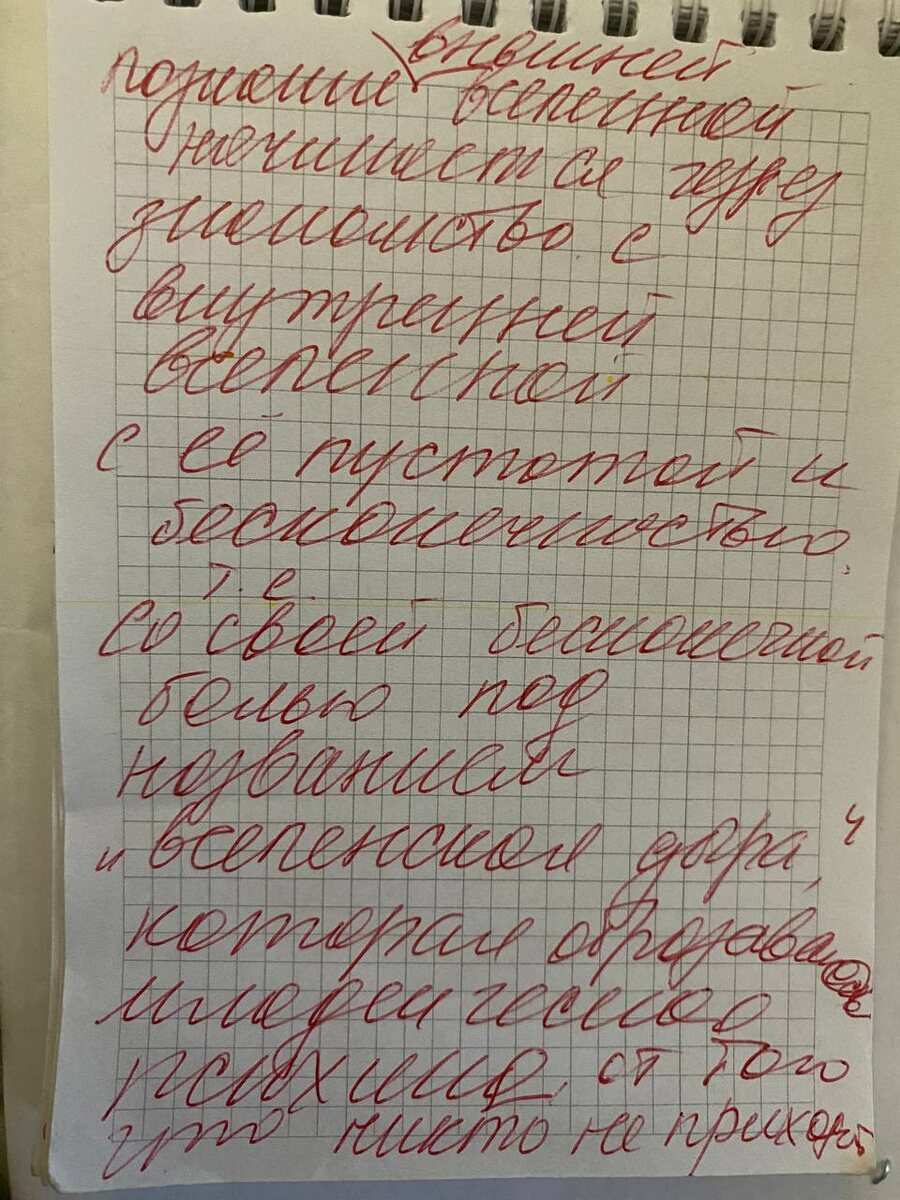 внешней
познание вселенной
начинается через
знакомство с
внутренней
вселенной
с её пустотой и
бесконечностью.
т.е.
со своей бесконечной
болью под
названием
"вселенская дыра,"
которая образовалась
младенческая
психика, от того
что никто не приходит